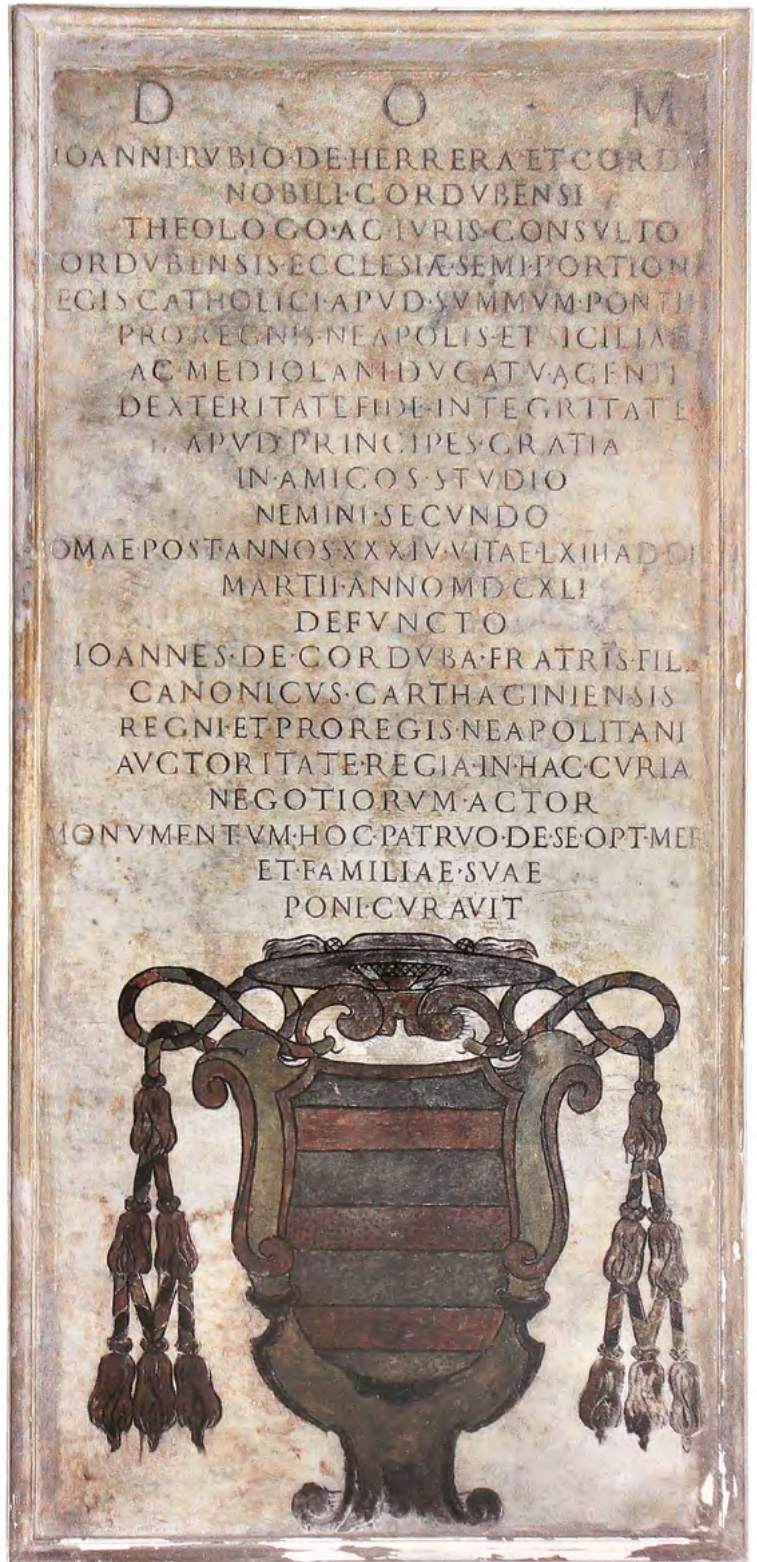 D · O · M
IOANNI·RVBIO·DE·HERRERA·ET·CORDV
NOBILI·CORDVBENSI
THEOLOGO·AC·IVRIS·CONSVLTO
ORDVBENSIS·ECCLESIÆ·SEMI·PORTION
EGIS CATHOLICI·APVD·SVMMVM·PONTI
PRO·REGNIS·NEAPOLIS·ET·SICILIAE
AC·MEDIOLANI·DVCATV·AGENTI
DEXTERITATE FIDE·INTEGRITATE
APVD·PRINCIPES·GRATIA
IN·AMICOS·STVDIO
NEMINI·SECVNDO
OMAE·POST·ANNOS·XXXIV·VITAE·LXIII
MARTII·ANNO MDCXLI
DEFVNCTO
IOANNES·DE·CORDVBA·FRATRIS·FIL
CANONICVS·CARTHAGINIENSIS
REGNI·ET PROREGIS·NEAPOLITANI
AVCTORITATE·REGIA·IN·HAC·CVRIA
NEGOTIORVM·ACTOR
MONVMENTVM·HOC·PATRVO·DE·SE·OPT·MER
ET·FAMILIAE·SVAE
PONI·CVRAVIT